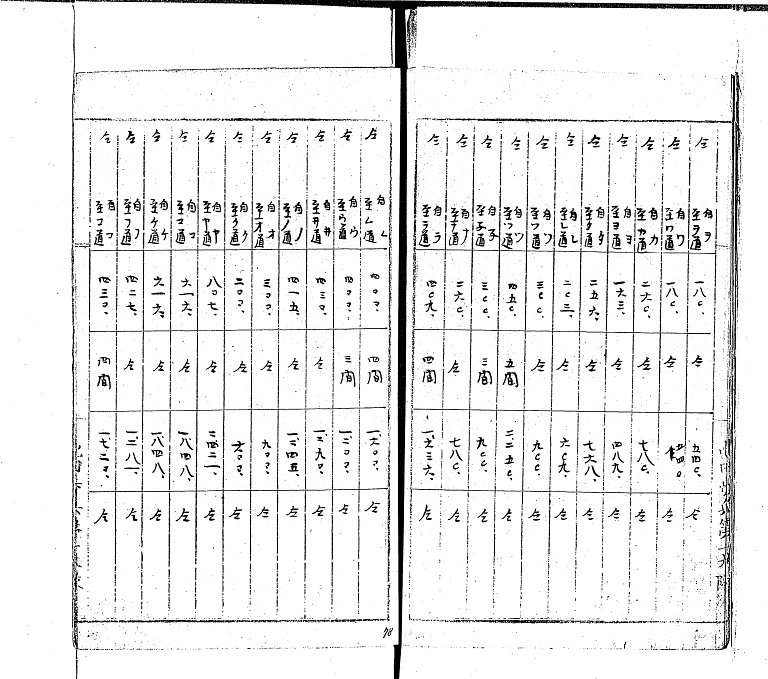 仝 自ヲ至ヲ道 一八〇、 仝 五四〇、 仝
仝 自ワ至ワ道 一八〇、 仝 五四〇 仝
仝 自カ至カ道 二六〇、 仝 七八〇、 仝
仝 自ヨ至ヨ道 一六三、 仝 四八九、 仝
仝 自タ至タ道 二五六、 仝 七六八、 仝
仝 自レ至レ道 二〇三、 仝 六〇九、 仝
仝 自ソ至ソ道 三〇〇、 仝 九〇〇、 仝
仝 自ツ至ツ道 四五〇、 五間 二二五〇、 仝
仝 自子至子道 三〇〇、 三間 九〇〇、 仝
仝 自ナ至ナ道 二六〇、 仝 七八〇、 仝
仝 自ラ至ラ道 四〇九、 四間 一、六三六、 仝
仝 自ム至ム道 四〇〇、 四間 一、六〇〇、 仝
仝 自ウ至ウ道 四〇〇、 三間 一、二〇〇、 仝
仝 自ヰ至ヰ道 四三〇、 仝 一、二九〇、 仝
仝 自ノ至ノ道 四一五、 仝 一、二四五、 仝
仝 自オ至オ道 三〇〇、 仝 九〇〇、 仝
仝 自ク至ク道 二〇〇、 仝 六〇〇、 仝
仝 自ヤ至ヤ道 八〇七、 仝 二、四二一、 仝
仝 自マ至マ道 六一六、 仝 一、八四八、 仝
仝 自ケ至ケ道 六一六、 仝 一、八四八、 仝
仝 自フ至フ道 四二七、 仝 一、二八一、 仝
仝 自コ至コ道 四三〇、 四間 一、七二〇、 仝
78